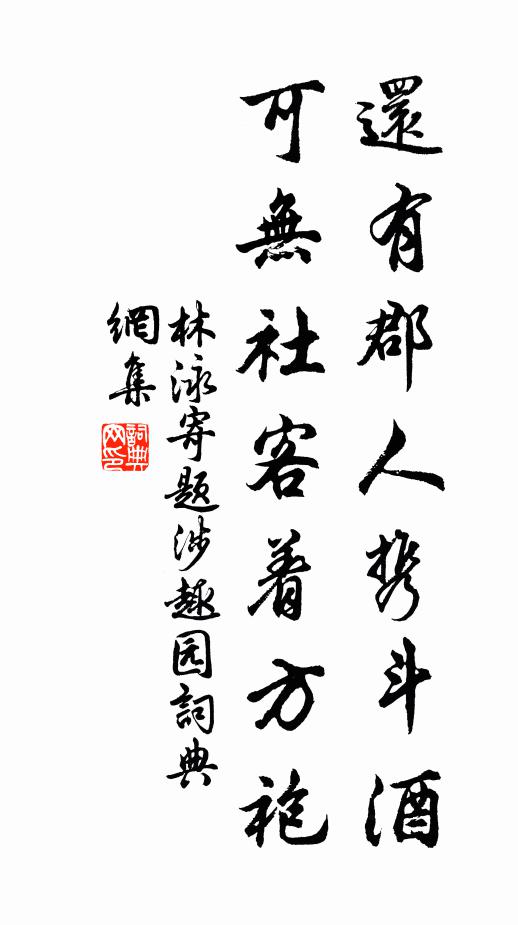 還有郡人携斗酒
可無社客着方袍
林泳寄题涉趣园詞典
網集
詞典網印